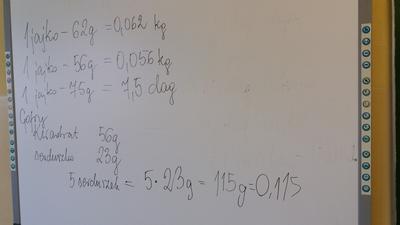 1 jajko - 62g = 0,062 kg
1 jajko - 56g = 0,056 kg
1 jajko - 75g = 7,5 dag
Gofry
Kwadrat 56g
serduszko 23g
5 serduszek = 5 • 23g = 115g = 0,115